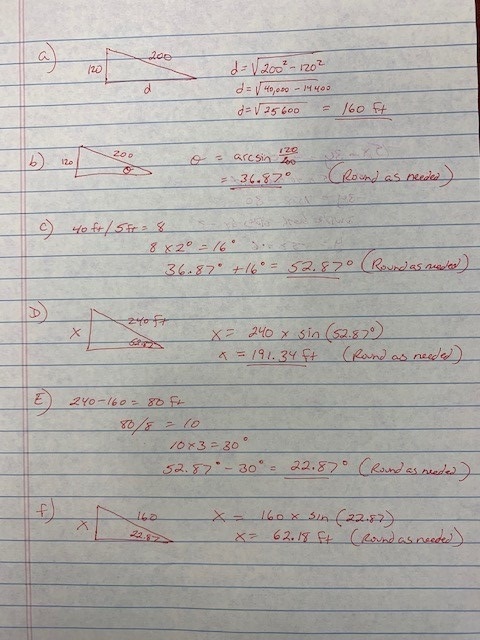 a)
200
120
d
d = √200² - 120²
d = √40,000 - 14400
d = √25600 = 160 ft
b)
120
200
θ
θ = arcsin 120/200
= 36.87° (Round as needed)
c) 40 ft / 5 ft = 8
8 x 2° = 16°
36.87° + 16° = 52.87° (Round as needed)
D)
x
240 ft
52.87
x = 240 x sin (52.87°)
x = 191.34 ft (Round as needed)
E) 240 - 160 = 80 ft
80/8 = 10
10 x 3 = 30°
52.87° - 30° = 22.87° (Round as needed)
f)
x
160
22.87
x = 160 x sin (22.87)
x = 62.18 ft (Round as needed)